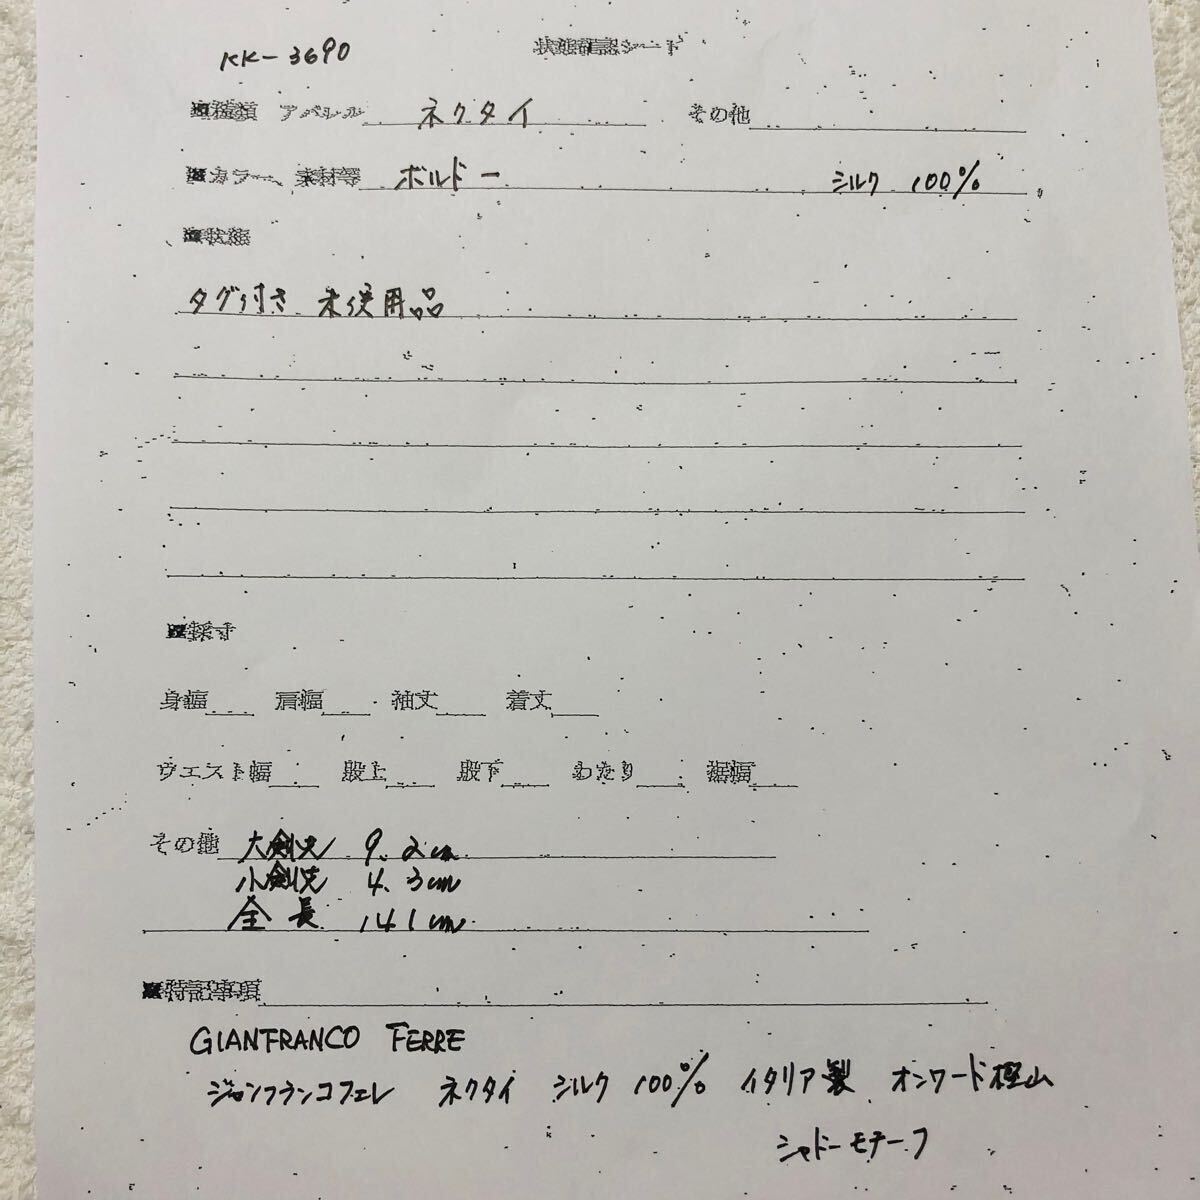 KK-3690 状態確認シート
■種類 アパレル ネクタイ その他
■カラー、素材等 ボルドー シルク 100%
■状態
タグ付き 未使用品
■採寸
身幅 肩幅 袖丈 着丈
ウエスト幅 股上 股下 わたり 裾幅
その他 大剣先 9.2cm
小剣先 4.3cm
全長 141cm
■特記事項
GIANFRANCO FERRE
ジャンフランコフェレ ネクタイ シルク 100% イタリア製 オンワード樫山
シャドーモチーフ